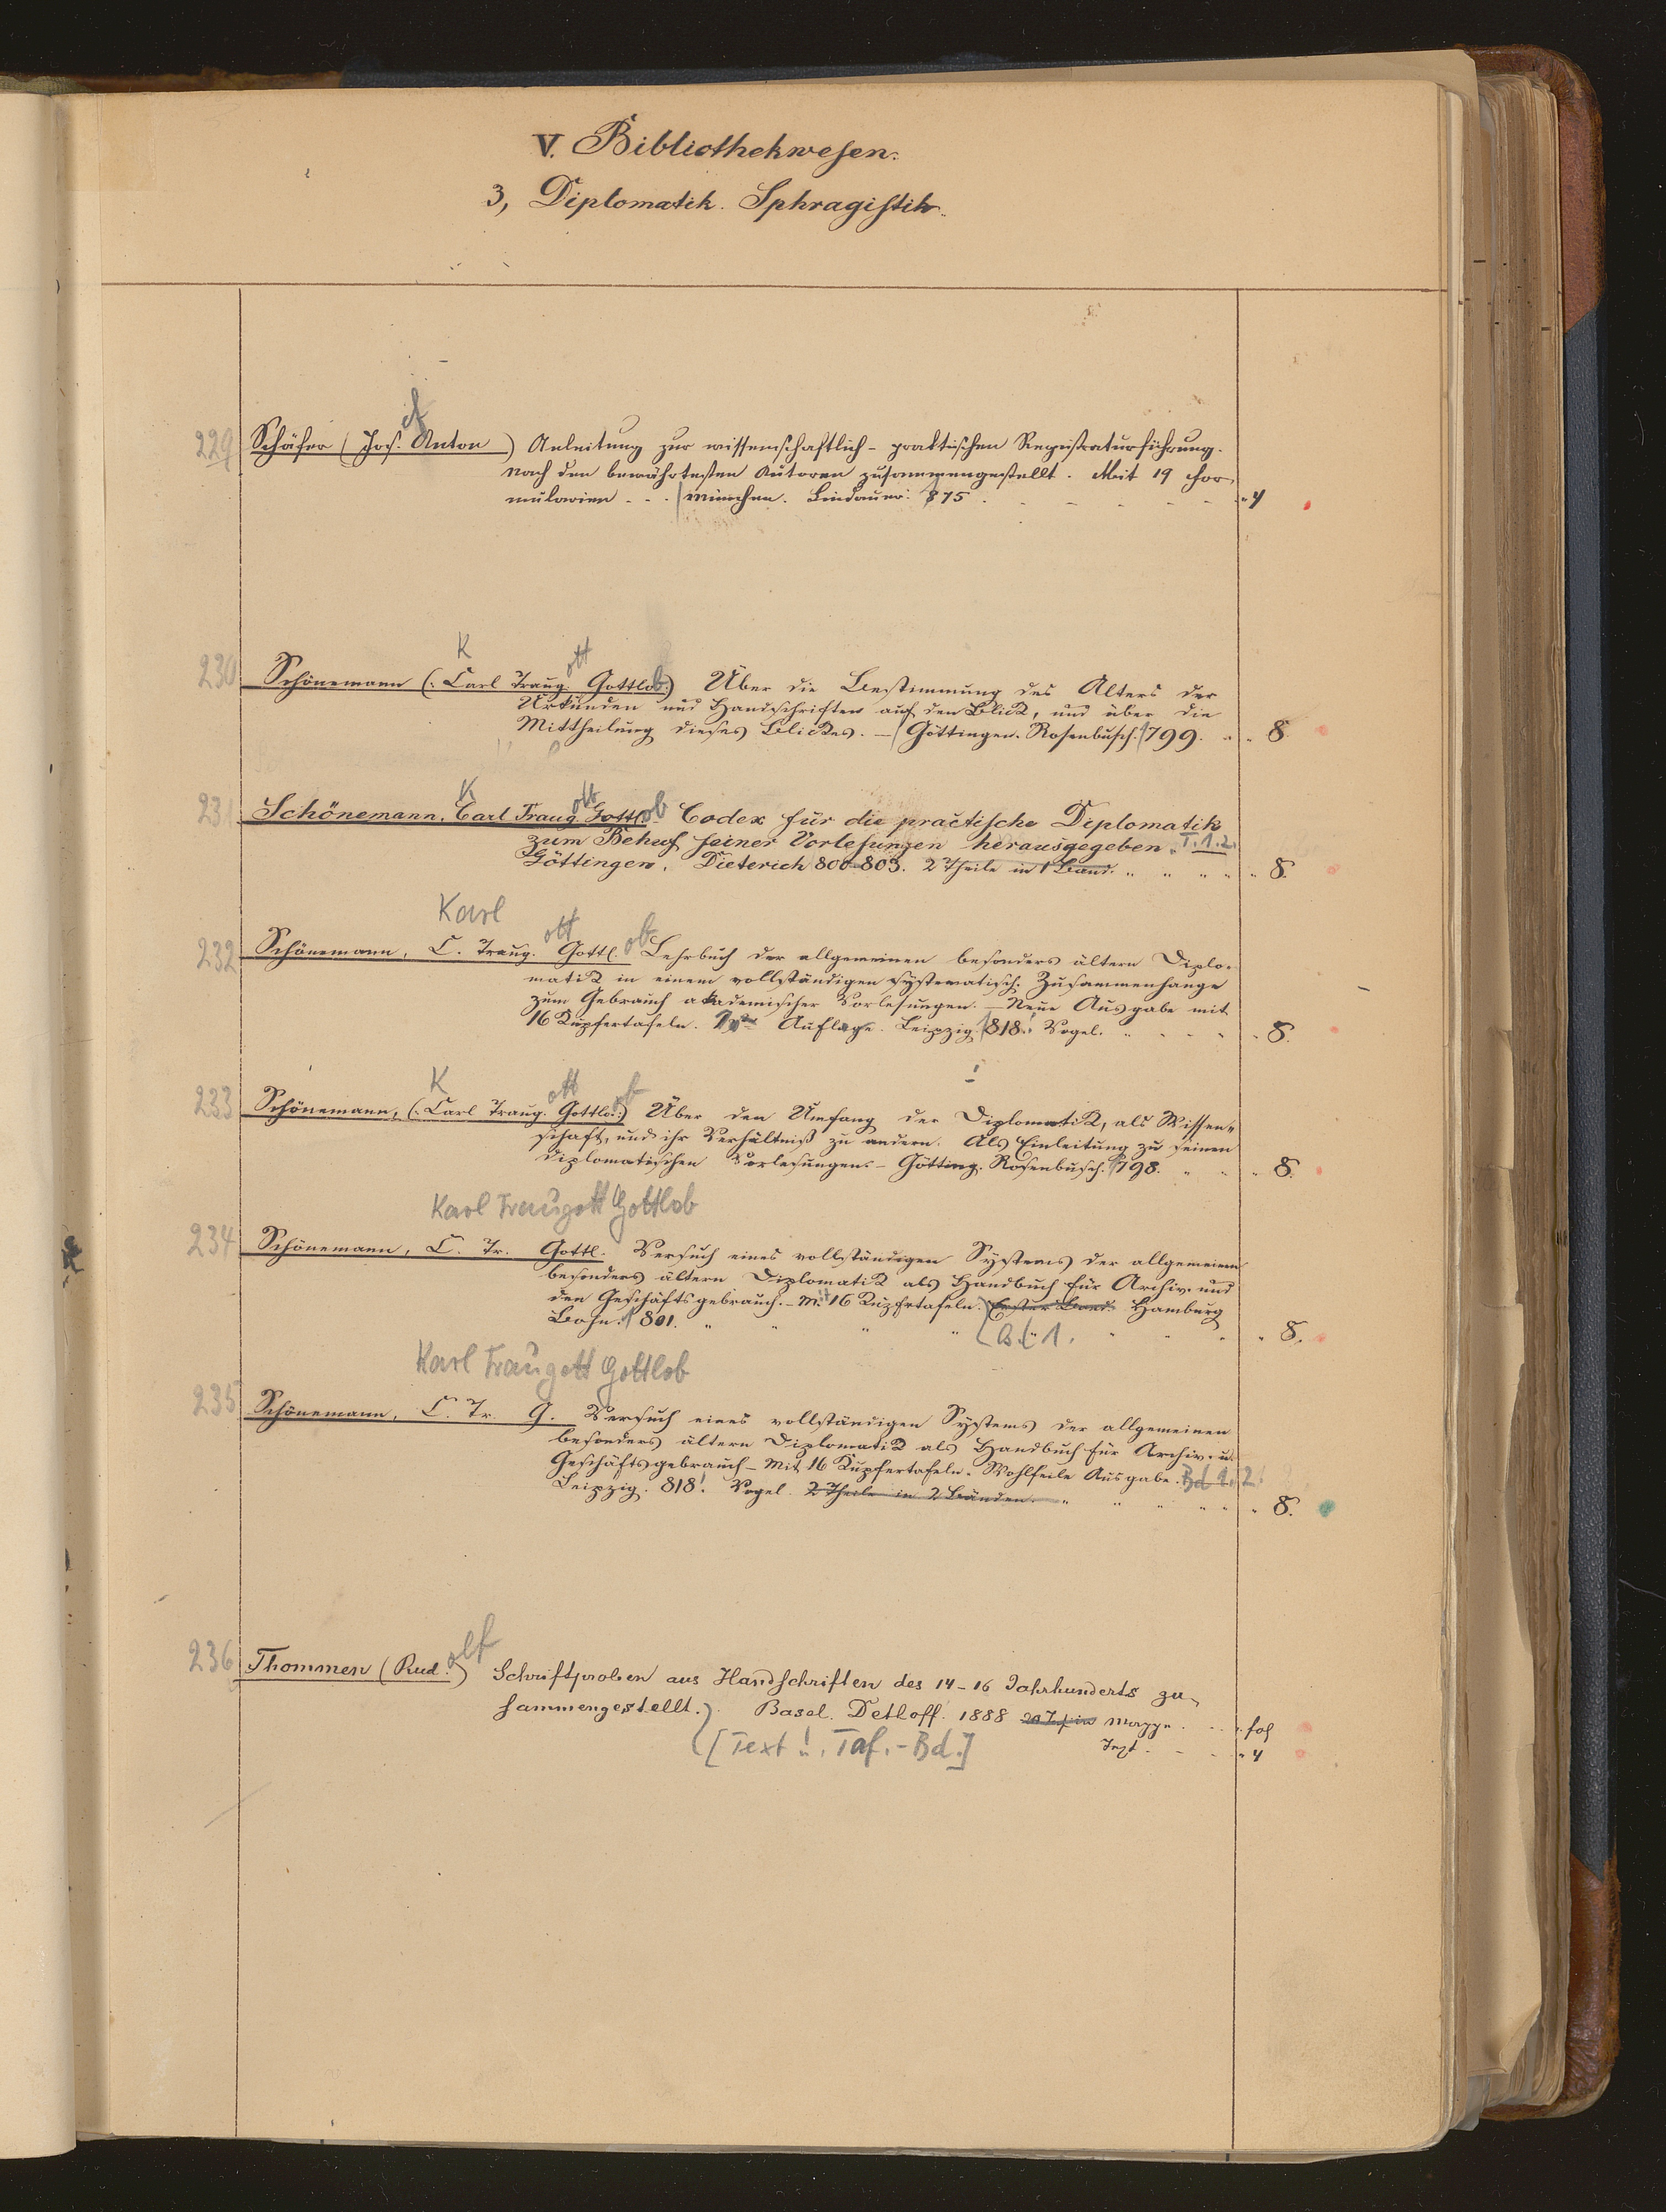 V. Bibliothekwesen.
3, Diplomatik. Sphragistik.
ef
229 Schäfer (Jos. Anton) Anleitung zur wissenschaftlich-praktischen Registraturführung.
Nach den bewährtesten Autoren zusammengestellt. Mit 19 For-
mularien - - . München. Lindauer. 875 . - - - - - " 4
K ott
230 Schönemann (: Carl Traug. Gottlob:) Über die Bestimmung des Alters der
Urkunden und Handschriften auf den Blick, und über die
Mittheilung dieses Blickes. - Göttingen. Rosenbusch. 1799. " " 8.
K ott ob
231 Schönemann, Carl Traug. Gottl. Codex für die practische Diplomatik
zum Behuf seiner Vorlesungen herausgegeben. T. 1. 2.
Göttingen. Dieterich 800-803. 2 Theile in 1 Band. " " " " " 8.
Karl ott ob
232 Schönemann, C. Traug. Gottl. Lehrbuch der allgemeinen besonders ältern Diplo-
matik in einem vollständigen systematisch. Zusammenhange
zum Gebrauch akademischer Vorlesungen. Neue Ausgabe mit
16 Kupfertafeln. Auflage. Leipzig 1818. Vogel. " " " " " 8.
K ott ob
233 Schönemann, (: Carl Traug. Gottlo.:) Über den Umfang der Diplomatik, als Wissen-
schaft, und ihr Verhältniß zu andern. Als Einleitung zu seinen
diplomatischen Vorlesungen. - Götting. Rosenbusch. 1798. " " " 8.
Karl Traugott Gottlob
234 Schönemann, C. Tr. Gottl. Versuch eines vollständigen Systems der allgemeinen
besonders ältern Diplomatik als Handbuch für Archiv. und
den Geschäftsgebrauch. - M. 16 Kupfertafeln. Erster Band. Hamburg
Bohn. 1801. " " " " Bd. 1. " " " " 8.
Karl Traugott Gottlob
235 Schönemann, C. Tr. G. Versuch eines vollständigen Systems der allgemeinen
besonders ältern Diplomatik als Handbuch für Archiv. u.
Geschäftsgebrauch - Mit 16 Kupfertafeln. Wohlfeile Ausgabe. Bd 1. 2.
Leipzig. 818. Vogel. 2 Theile in 2 Bänden. " " " " " " 8.
olf
236 Thommen (Rud.) Schriftproben aus Handschriften des 14-16 Jahrhunderts zu-
sammengestellt. Basel. Detloff. 1888 Mappe . . . fol
[Text u. Taf.-Bd.] Text . - - " 4